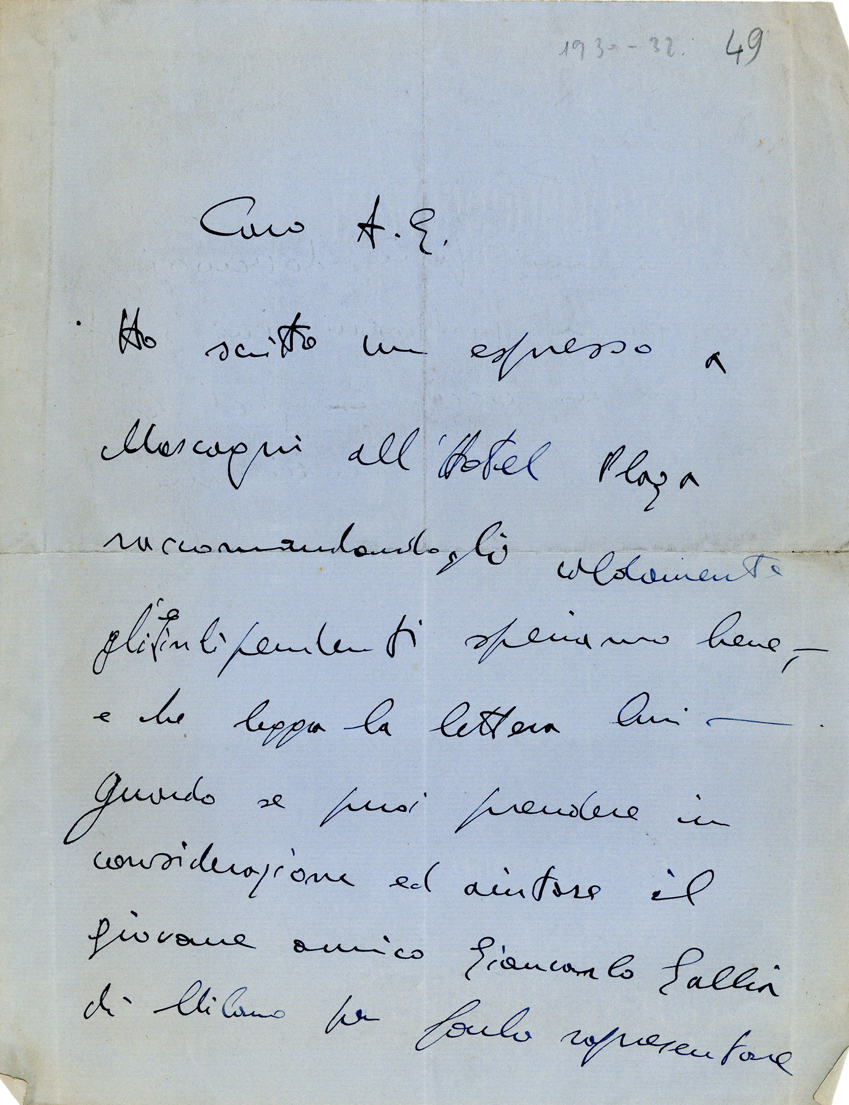 1930-32. 49
Caro A. G.
Ho scritto un espresso a
Mascagni all'Hotel Plaza
raccomandandogli caldamente
gli Indipendenti speriamo bene, —
e che legga la lettera lui —
Guarda se puoi prendere in
considerazione ed aiutare il
giovane amico Giancarlo Gallia
di Milano per farlo rapresentare